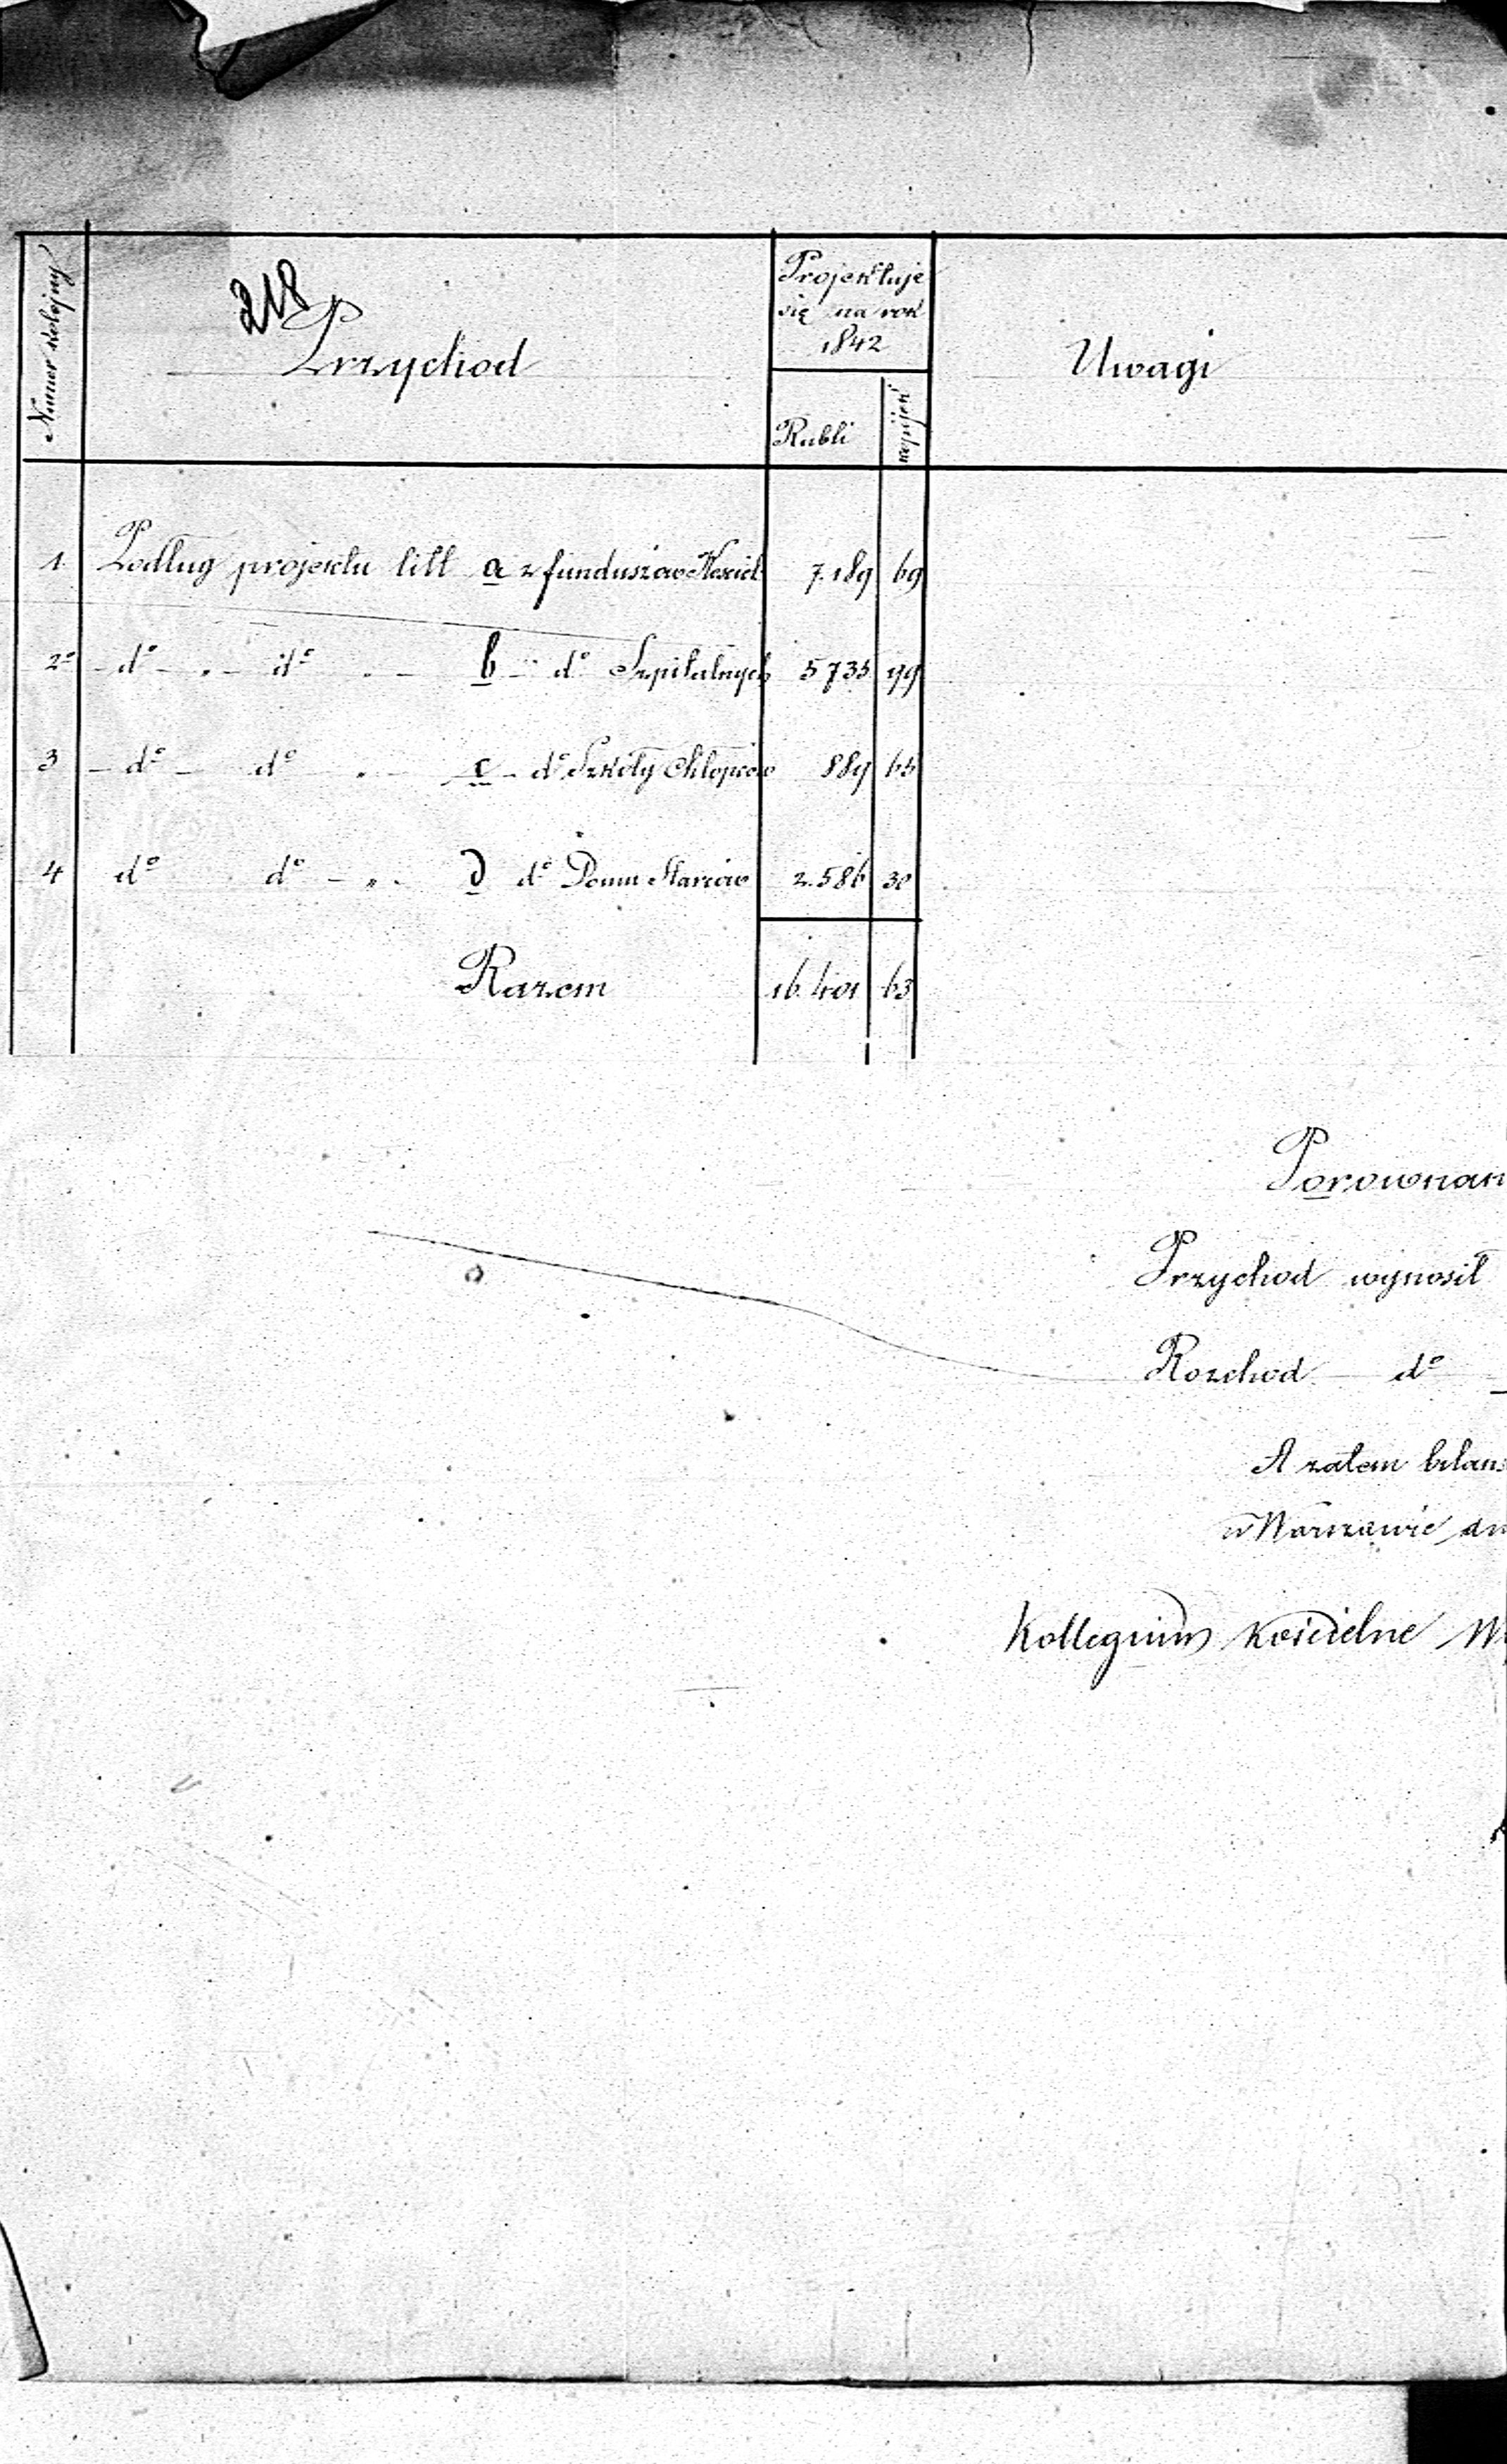 218
Numer kolejny
Przychod
Projektuje
się na rok
1842
Rubli
kopijek
Uwagi
1. Podług projektu litt a z funduszów Kościel: 7.189 69
2º dº „ dº „ b „ dº Szpitalnych 5735 99
3 dº dº „ c dº Szkoły Chłopców 889 65
4 dº dº „ d dº Domu Starców 2.586 30
Razem 16.401 63
Porownan
Przychod wynosił
Rozchod dº
A zatem bilans
w Warszawie dn
Kollegium Kościelne